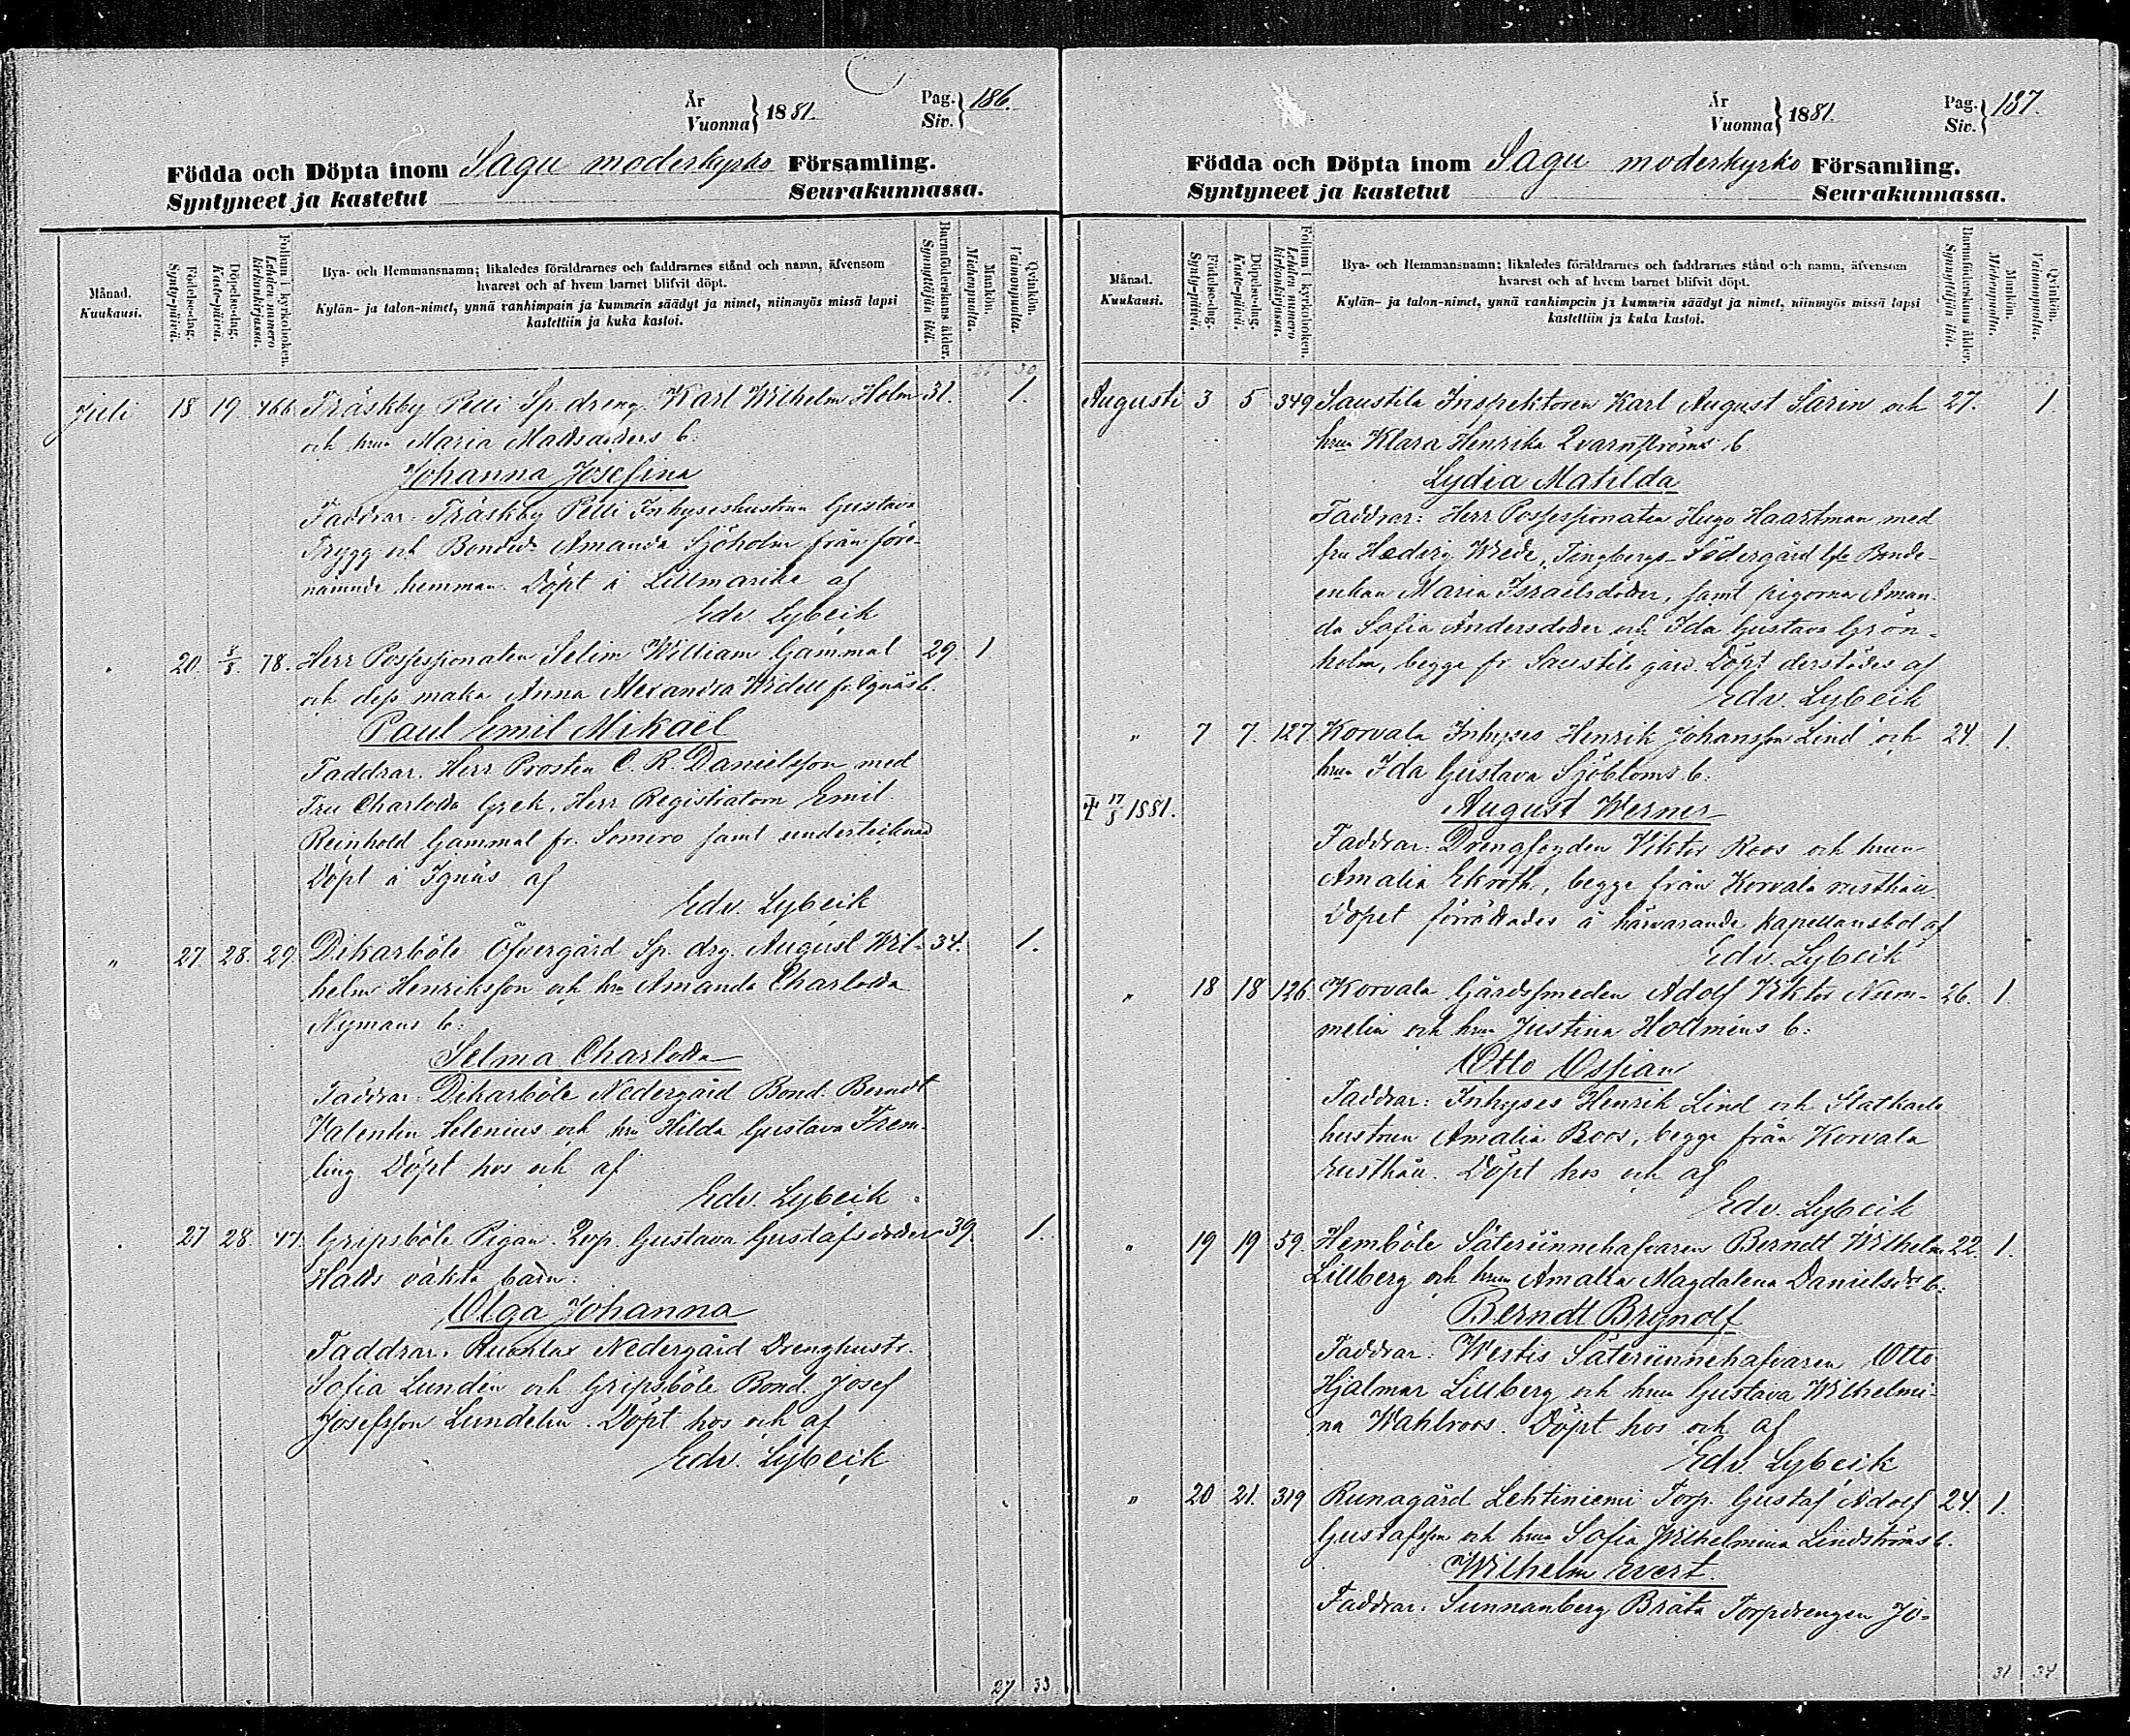 År
Vuonna } 1881.
Pag.
Siv. } 186.
Födda och Döpta inom Sagu moderkyrko Församling.
Syntyneet ja kastetut Seurakunnassa.
Månad.
Kuukausi.
Födelse-dag.
Synty-päivä.
Döpelse-dag.
Kaste-päivä.
Folium i kyrkoboken.
Lehden numero kirkonkirjassa.
Bya- och Hemmansnamn; likaledes föräldrarnes och faddrarnes stånd och namn, äfvensom
hvarest och af hvem barnet blifvit döpt.
Kylän- ja talon-nimet, ynnä vanhimpain ja kummein säädyt ja nimet, niinmyös missä lapsi
kastettiin ja kuka kastoi.
Barnföderskans ålder.
Synnyttäjän ikä.
Mankön.
Miehenpuolta.
Qvinkön.
Vaimonpuolta.
Juli 18 19 466 Träskby Pelli Sp. dreng. Karl Wilhelm Holm 31. 1.
och hun Maria Madsdoders b.
Johanna Josefina
Faddrar: Träskby Pelli Inhyseshustrun Gustava
Trygg och Bonded. Amanda Sjöholm från före-
nämnde hemman. Döpt i Lillmarike af
Edv. Lybeck
" 20. 3/8. 78. Herr Possessionaten Selim William Gammal 29. 1
och dess maka Anna Alexandra Widell fr. Ignäs b.
Paul Emil Mikaël
Faddrar. Herr Prosten C. R. Danielsson med
Fru Charlotta Grek, Herr Registratorn Emil
Reinhold Gammal fr. Somero samt undertecknad
Döpt å Ignäs af
Edv. Lybeck
" 27. 28. 29. Dikarböle Öfvergård Sp. drg. August Wil- 34. 1.
helm Henriksson och hn Amanda Charlotta
Nymans b:
Selma Charlotta
Faddrar: Dikarböle Nedergård Bond. Berndt
Valentin Selenius och hn Hilda Gustava Frem-
ling Döpt hos och af
Edv. Lybeck
" 27 28. 47. Gripsböle Pigan Qvp. Gustava Gustafsdoder 39. 1.
Halls oäkta barn:
Olga Johanna
Faddrar. Nedergård Drenghustr.
Sofia Lundén och Gripsböle Bond. Josef
Josefsson Lundelin. Döpt hos och af
Edv. Lybeck
27 33
År
Vuonna } 1881.
Pag.
Siv. } 187.
Födda och Döpta inom Sagu moderkyrko Församling.
Syntyneet ja kastetut Seurakunnassa.
Månad.
Kuukausi.
Födelse-dag.
Synty-päivä.
Döpelse-dag.
Kaste-päivä.
Folium i kyrkoboken.
Lehden numero kirkonkirjassa.
Bya- och Hemmansnamn; likaledes föräldrarnes och faddrarnes stånd och namn, äfvensom
hvarest och af hvem barnet blifvit döpt.
Kylän- ja talon-nimet, ynnä vanhimpain ja kummein säädyt ja nimet, niinmyös missä lapsi
kastettiin ja kuka kastoi.
Barnföderskans ålder.
Synnyttäjän ikä.
Mankön.
Miehenpuolta.
Qvinkön.
Vaimonpuolta.
Augusti 3 5 349 Saustila Inspektoren Karl August Sarin och 27. 1
hun Klara Henrika Qvarnströms b
Lydia Matilda
Faddrar: Herr Possessionaten Hugo Haartman med
fru Hedvig Wrede, Tingbergs-Södergård Bonde-
enkan Maria Israelsdoder, samt pigorna Aman-
da Sofia Andersdoder och Ida Gustava Grön-
holm, begge fr. Saustila gård. Döpt derstädes af
Edv. Lybeck
" 7 7. 127 Korvala Inhyses Henrik Johansson Lind och 24. 1.
hun Ida Gustava Sjöbloms b:
17/8 1881. August Werner
Faddrar: Drengfogden Viktor Roos och hun
Amalia Ekroth, begge från Korvala rusthåll.
Dopet förrättades å härvarande kapellansbol af
Edv. Lybeck
" 18 18 126. Korvala Gårdssmeden Adolf Viktor Num- 26. 1.
melin och hun Justina Holmens b:
Otto Ossian
Faddrar: Inhyses Henrik Lind och Statkarls
hustrun Amalia Roos, begge från Korvala
rusthåll. Döpt hos och af
Edv. Lybeck
" 19 19 59. Hemböle Säteriinnehafvaren Berndt Wilhelm 22. 1.
Lillberg och hun Amalia Magdalena Danielsdr b:
Berndt Brynolf
Faddrar: Westis Säteriinnehafvaren Otto
Hjalmar Lillberg och hun Gustava Wilhelmi-
na Wahlroos. Döpt hos och af
Edv. Lybeck
" 20 21. 319 Runagård Lehtiniemi Torp. Gustaf Adolf 24. 1.
Gustafsson och hun Sofia Wilhelmina Lindströms b.
Wilhelm Evert.
Faddrar: Sunnanberg Bråta Torpdrengen Jo-
31 34